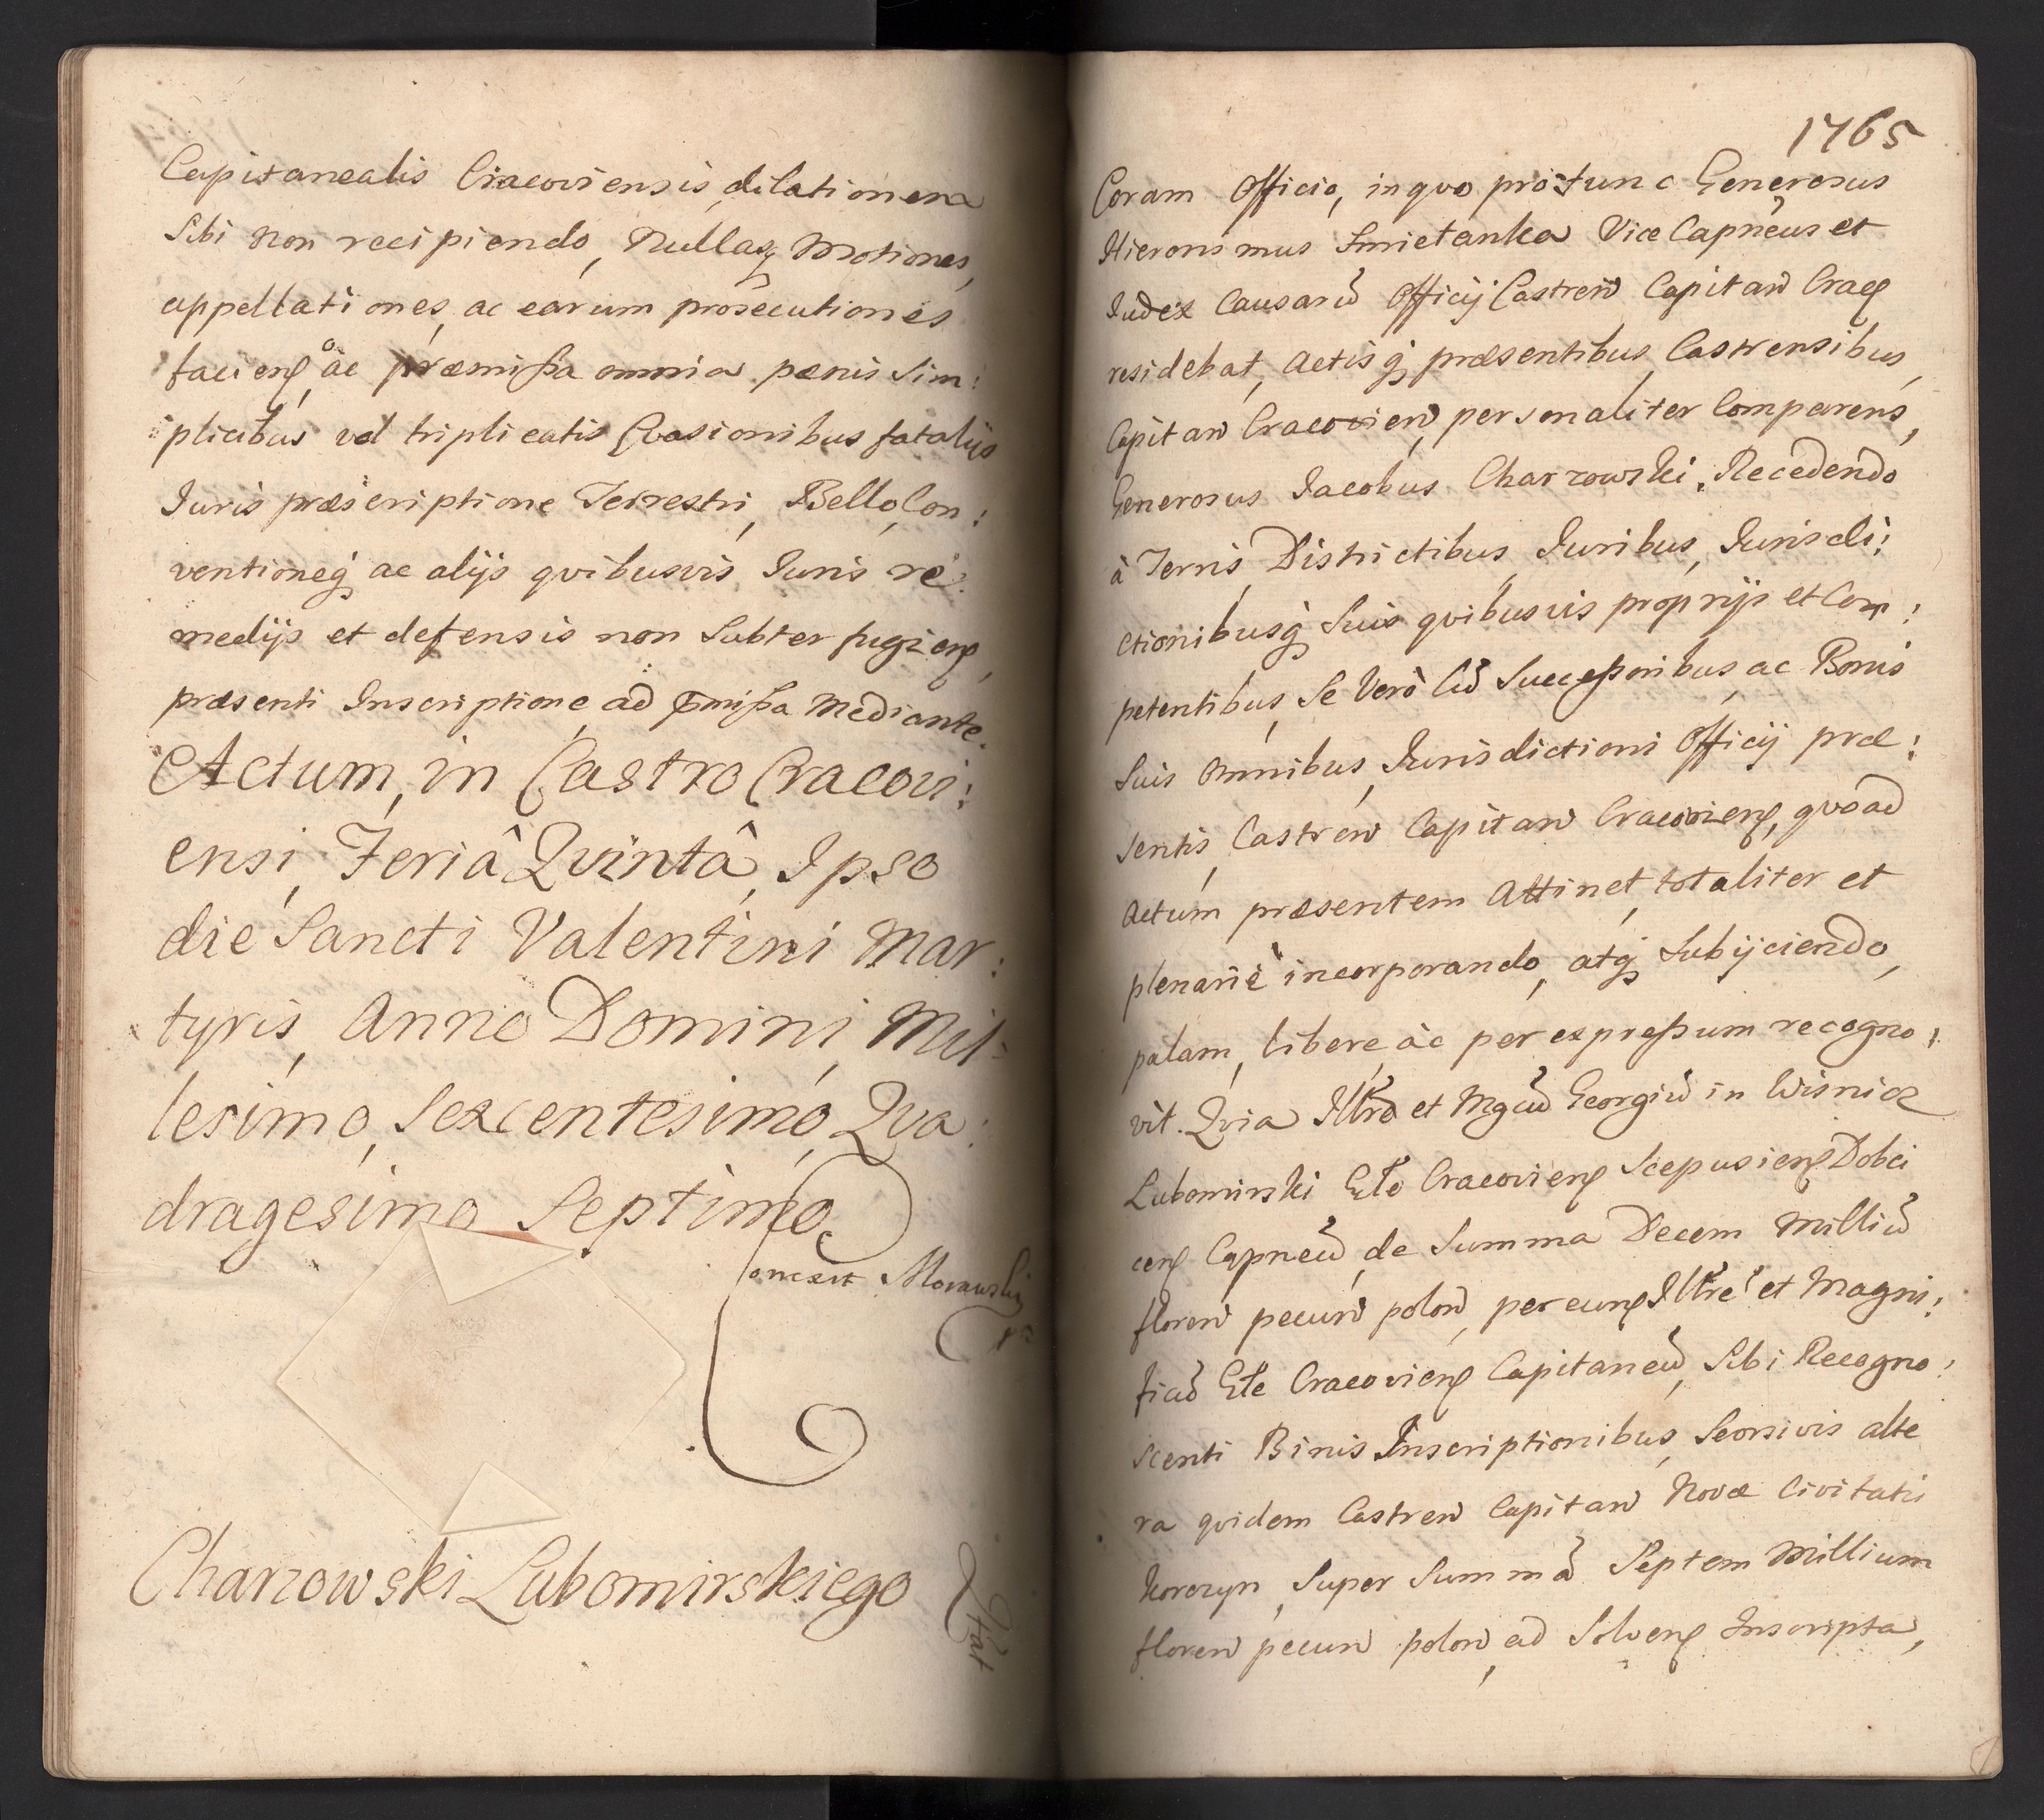 Capitanealis Cracoviensis, dilationem
Sibi non recipiendo, Nullasq̃ Motiones,
appellationes, ac earum prosecutiones
faciens, ac præmißa omnia pænis Sim:
:plicibus vel triplicatis Evasionibus fatalijs
Iuris præscriptione Terrestri, Bello, Con:
ventioneq̃ ac alijs qvibusvis Iuris re:
medijs et defensis non Subter fugiens,
præsenti Inscriptione ad p̃mißa Mediante.
Actum, in Castro Cracovi:
ensi, Feriâ Qvintâ, Ipso
die Sancti Valentini Mar:
tyris, Anno Domini, Mil:
lesimo, Sexcentesimo, Qva:
dragesimo Septimo.
Morawski
Charzowski Lubomirskiego
1765
Coram Officio, in qvo protunc Generosus
Hieronimus Smietanka Vice Capneus et
Iudex Causarũ Officij Castreñ Capitañ Crac
residebat, Actisq̃ præsentibus, Castrensibus,
Capitañ Cracovień, personaliter Comparens,
Generosus Jacobus Charzowski. Recedendo
à Terris, Districtibus, Iuribus, Iurisdi:
ctionibusq̃ Suis qvibusvis proprijs et Com:
petentibus, Se Verò Cũ Succeßoribus, ac Bonis
Suis Omnibus, Iurisdictioni Officij præ:
sentis, Castreñ Capitañ Cracoviens, qvoad
Actum præsentem Attinet, totaliter et
plenariè incorporando, atq̃ Subijciendo,
palam, libere, ac per expreßum recogno:
vit. Qvia Illr̃e et Mgcũ Georgiũ in Wisnicz
Lubomirski Gñle Cracoviens Scepusiens Dobci
cens Capneũ, de Summa Decem Milliũ
floreñ pecuñ poloñ, per eund Illr̃e et Magni:
ficũ Gñle Cracoviens Capitaneũ, Sibi Recogno:
scenti Binis Inscriptionibus, Seorsivis alte
ra qvidem Castreñ Capitañ Novæ Civitatis
Korczyn, Super Summã Septem Millium
floreñ pecuñ poloñ, ad Solvens Inscripta,